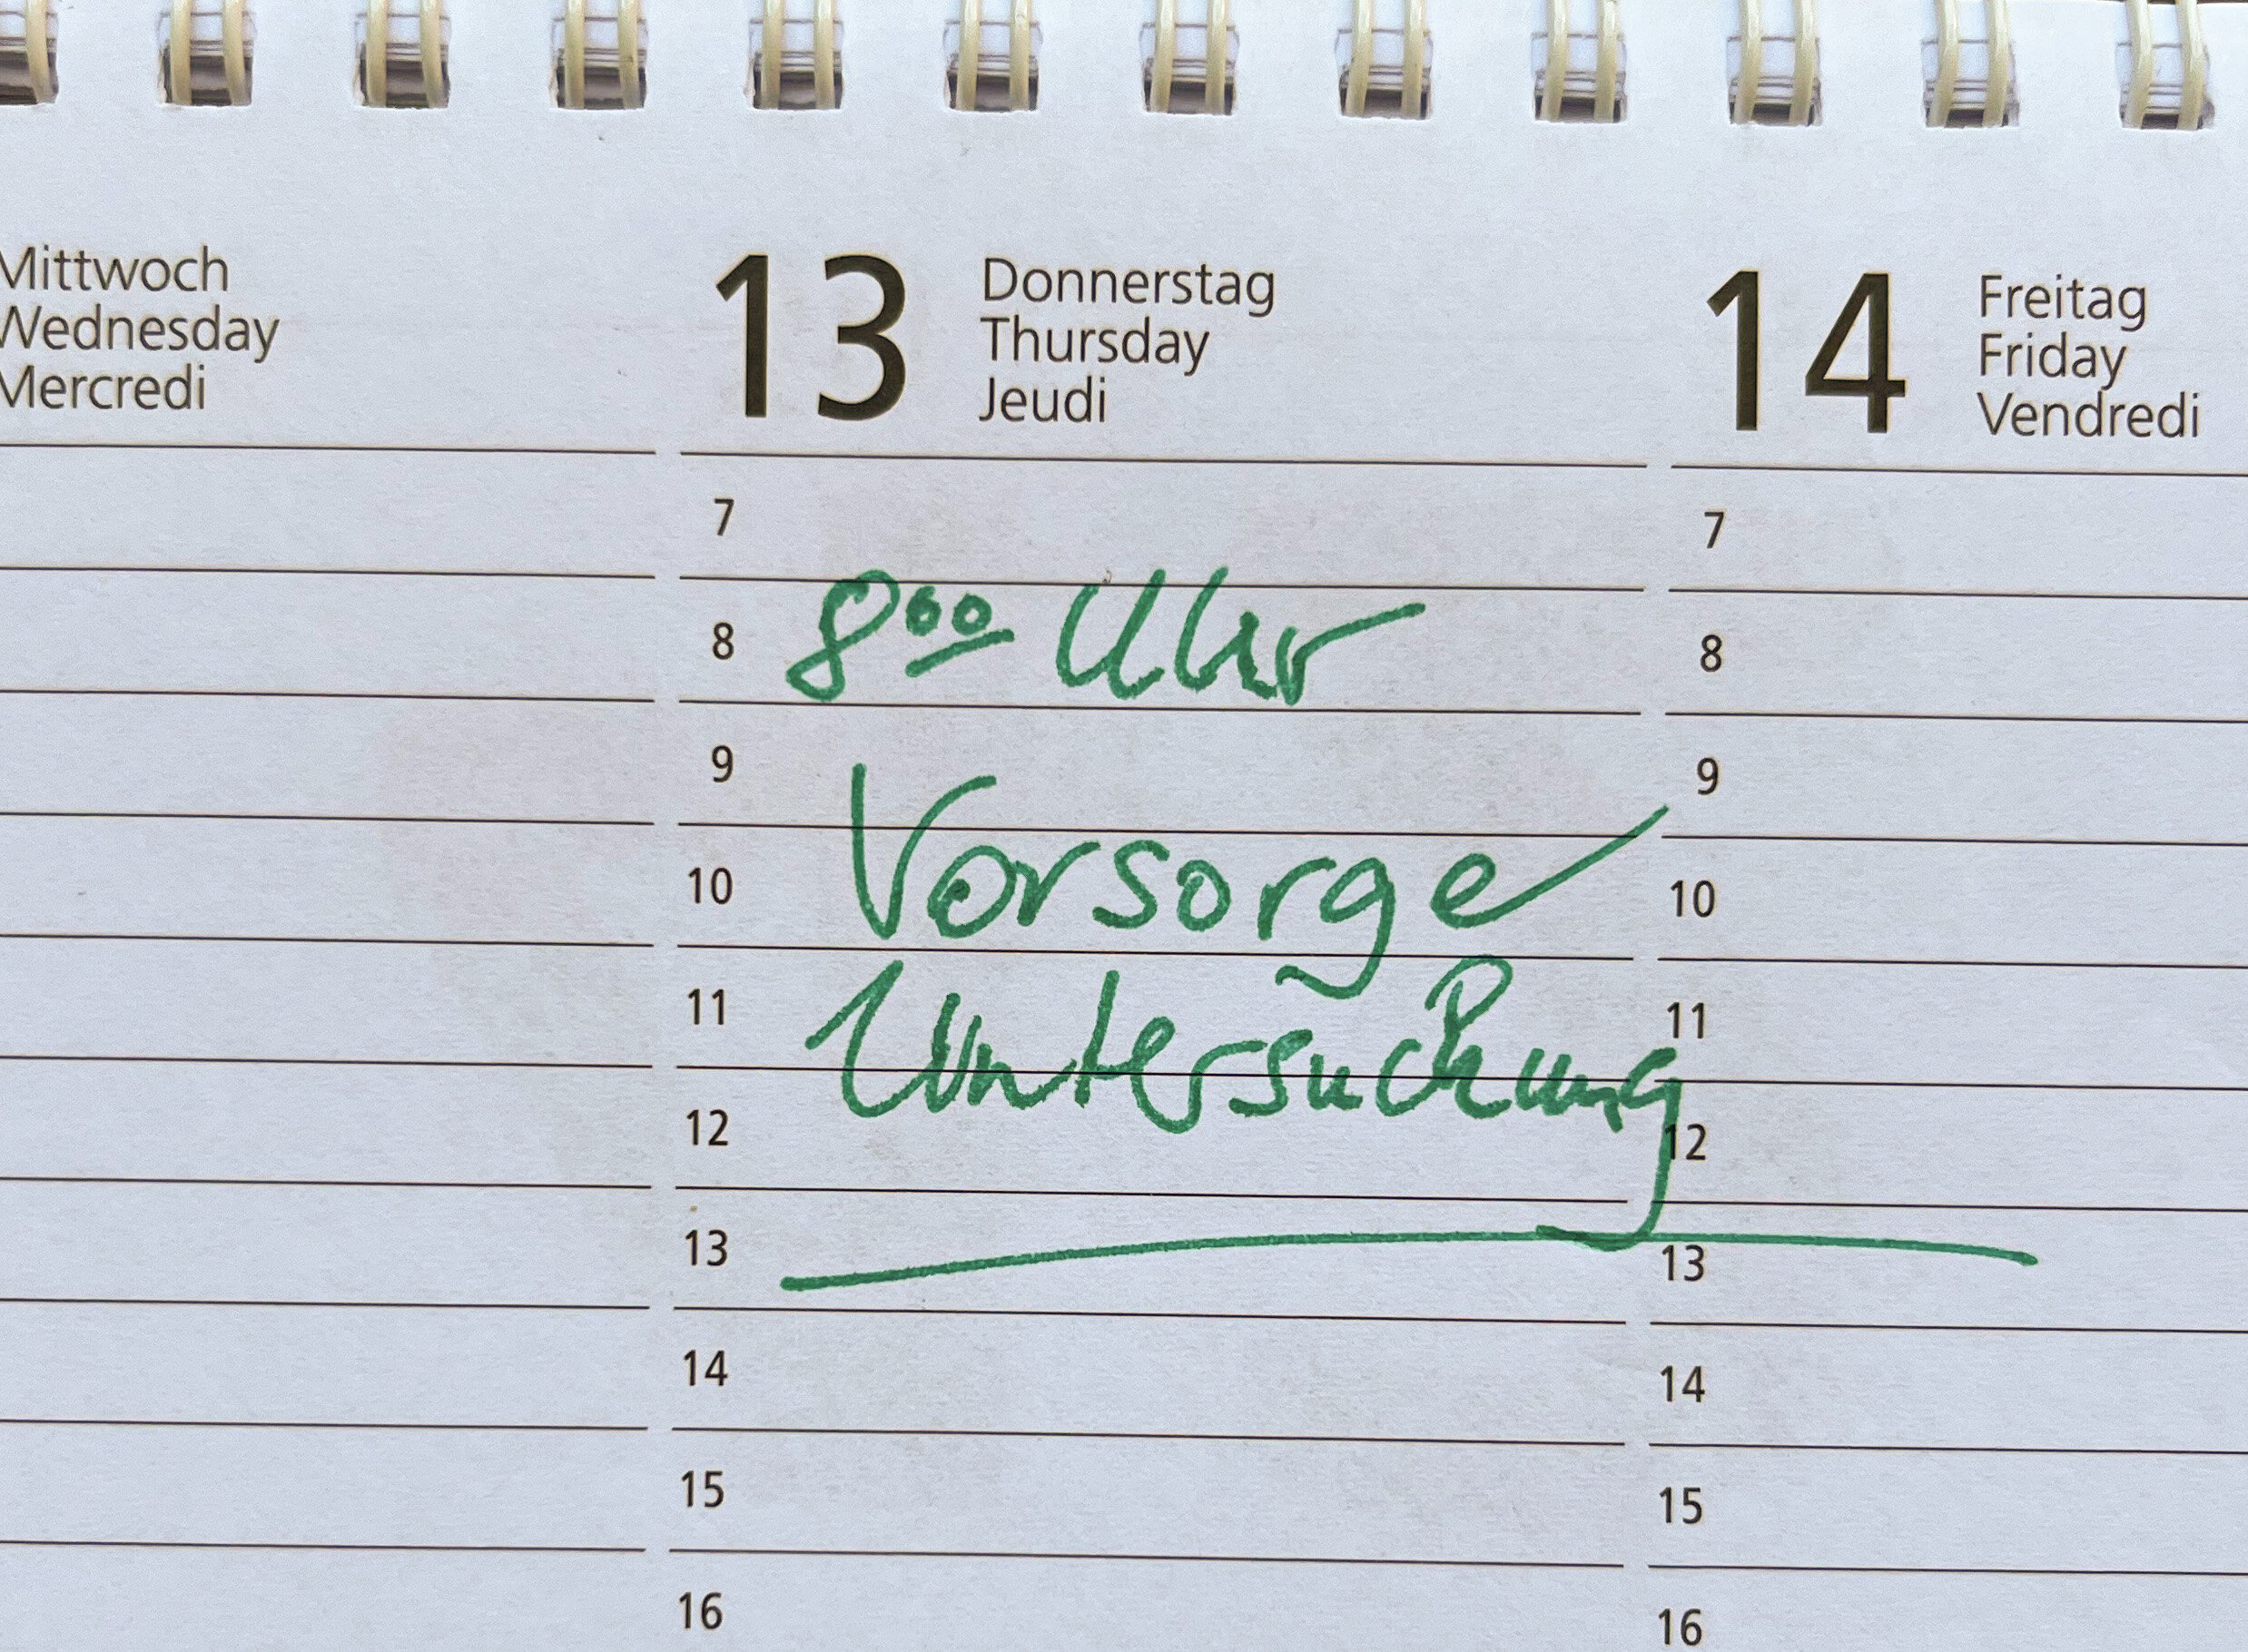 Mittwoch
Wednesday
Mercredi
13
Donnerstag
Thursday
Jeudi
7
8
8⁰⁰ Uhr
9
10
Vorsorge
11
Untersuchung
12
13
14
15
16
14
Freitag
Friday
Vendredi
7
8
9
10
11
12
13
14
15
16